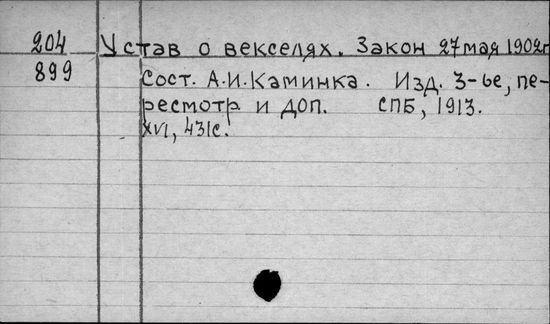 204 Устав о векселях. Закон 27 мая 1902 г
899 Сост. А.И. Каминка. Изд. 3-ье, пе-
ресмотр и доп. СПБ, 1913.
XVI, 431с.